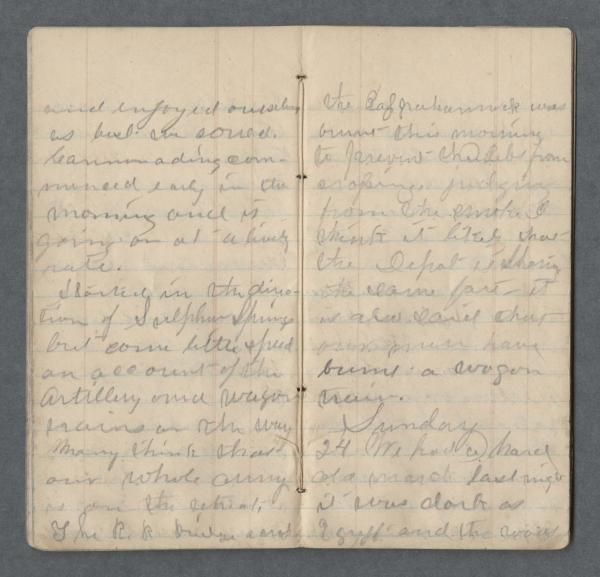 and enjoyed ourselves
as best we coued.
Cannonading com-
menced early in the
morning and is
going on at a lively
rate.
Started in the direc-
tion of Sulphur Springs
but come little speed
on account of the
Artillery and wagon
trains on the way
Many think that
our whole army
is on the retreat,
The R. R. Bridge
the was
burnt this morning
to prevent the Rebs from
crossing judging
from the smoke I
think it likely that
the Depot is sharing
the same fate it
is also said that
our men have
burnt a wagon
train.
Sunday
24 We had a hard
old march last night
it was dark as
and the woods